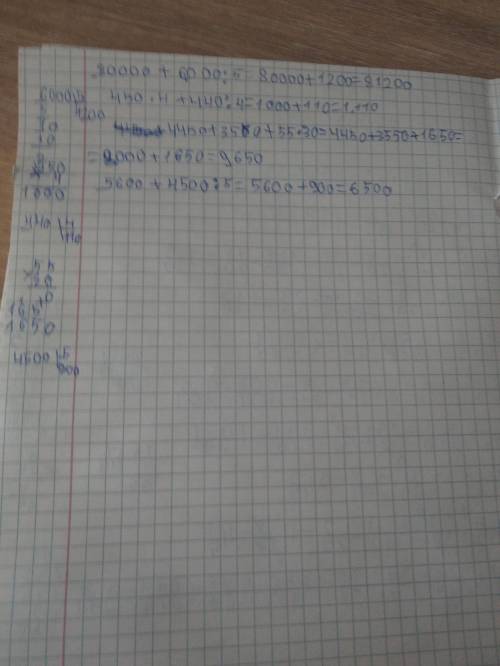 80000 + 6000 : 5 = 80000+1200=81200
450 · 4 + 440 : 4 = 1000+110=1.110
4450+3550+55·30=4450+3550+1650=
= 8000+1650=9650
5600 + 4500 : 5 = 5600 +900=6500
6000 5
1200
10
10
450
4
1000
440 4
110
55
30
165
1650
4500 5
900